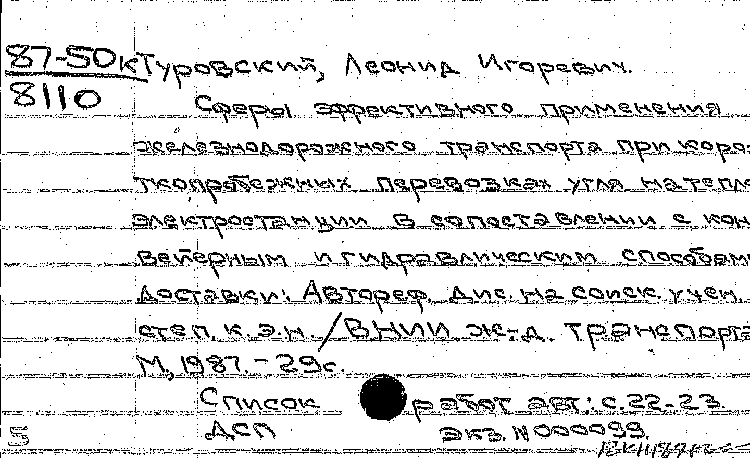 87-50к Туровский, Леонид Игоревич.
8110
Сферы эффективного применения
железнодорожного транспорта при коро-
ткопробежных перевозках угля на тепло
электростанции в сопоставлении с кон-
вейерным и гидравлическим способами
доставки: Автореф. дис. на соиск. учен.
степ. к.э.н. /ВНИИ ж-д. транспорта
М, 1987. - 29с.
Список работ авт.: с.22-23.
ДСП экз. N 000099.
5